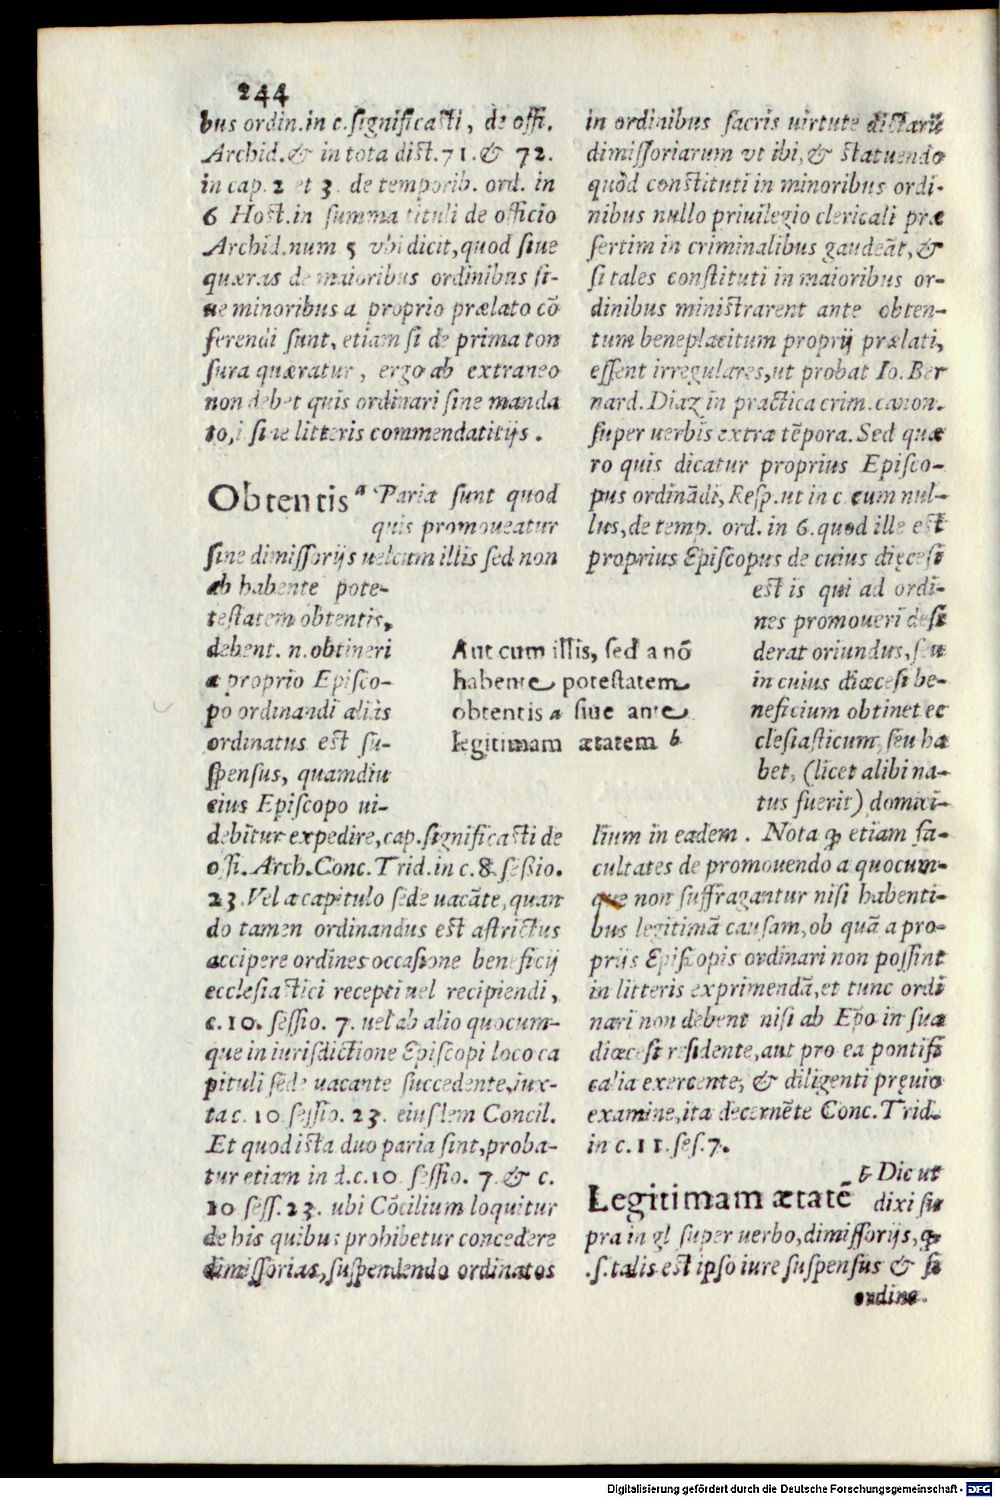 244
bus ordin. in c. significasti, de offi.
Archid. & in tota dist. 71. & 72.
in cap. 2 et 3. de temporib. ord. in
6 Host. in summa tituli de officio
Archid. num 5 vbi dicit, quod siue
quæras de maioribus ordinibus si-
ue minoribus a proprio prælato cō
ferendi sunt, etiam si de prima ton
sura quæratur, ergo ab extraneo
non debet quis ordinari sine manda
to, i sine litteris commendatitijs.
Obtentis a Paria sunt quod
quis promoueatur
sine dimissorijs uel cum illis sed non
ab habente pote-
testatem obtentis,
debent. n. obtineri
a proprio Episco-
po ordinandi aliàs
ordinatus est su-
spensus, quamdiu
eius Episcopo ui-
debitur expedire, cap. significasti de
offi. Arch. Conc. Trid. in c. 8. sessio.
23. Vel a capitulo sede uacāte, quan
do tamen ordinandus est astrictus
accipere ordines occasione beneficij
ecclesiastici recepti uel recipiendi,
c. 10. sessio. 7. uel ab alio quocum-
que in iurisdictione Episcopi loco ca
pituli sede uacante succedente, iux-
ta c. 10 sessio. 23. eiusdem Concil.
Et quod ista duo paria sint, proba-
tur etiam in d. c. 10 sessio. 7. & c.
10 sess. 23. ubi Cōcilium loquitur
de his quibus prohibetur concedere
dimissorias, suspendendo ordinatos
Aut cum illis, sed a nō
habente potestatem
obtentis a siue ante
legitimam ætatem b
in ordinibus sacris uirtute dictarū
dimissoriarum vt ibi, & statuendo
quòd constituti in minoribus ordi-
nibus nullo priuilegio clericali præ
sertim in criminalibus gaudeāt, &
si tales constituti in maioribus or-
dinibus ministrarent ante obten-
tum beneplacitum proprij prælati,
essent irregulares, ut probat Io. Ber
nard. Diaz in practica crim. canon.
super uerbis extra tēpora. Sed quæ
ro quis dicatur proprius Episco-
pus ordinādi, Resp. ut in c. cum nul-
lus, de temp. ord. in 6. quod ille est
proprius Episcopus de cuius diœcesi
est is qui ad ordi-
nes promoueri desi
derat oriundus, seu
in cuius diœcesi be-
neficium obtinet ec
clesiasticum, seu ha
bet, (licet alibi na-
tus fuerit) domici-
lium in eadem. Nota ꝙ etiam fa-
cultates de promouendo a quocum-
que non suffragantur nisi habenti-
bus legitimā causam, ob quā a pro-
prijs Episcopis ordinari non possint
in litteris exprimendā, et tunc ordi
nari non debent nisi ab Epo in sua
diœcesi residente, aut pro ea pontifi
calia exercente, & diligenti pręuio
examine, ita decernēte Conc. Trid.
in c. 11. ses. 7.
Legitimam ætatē b Dic ut
dixi su
pra in gl super uerbo, dimissorijs, ꝙ
.s. talis est ipso iure suspensus & si
ordine.
Digitalisierung gefördert durch die Deutsche Forschungsgemeinschaft - DFG